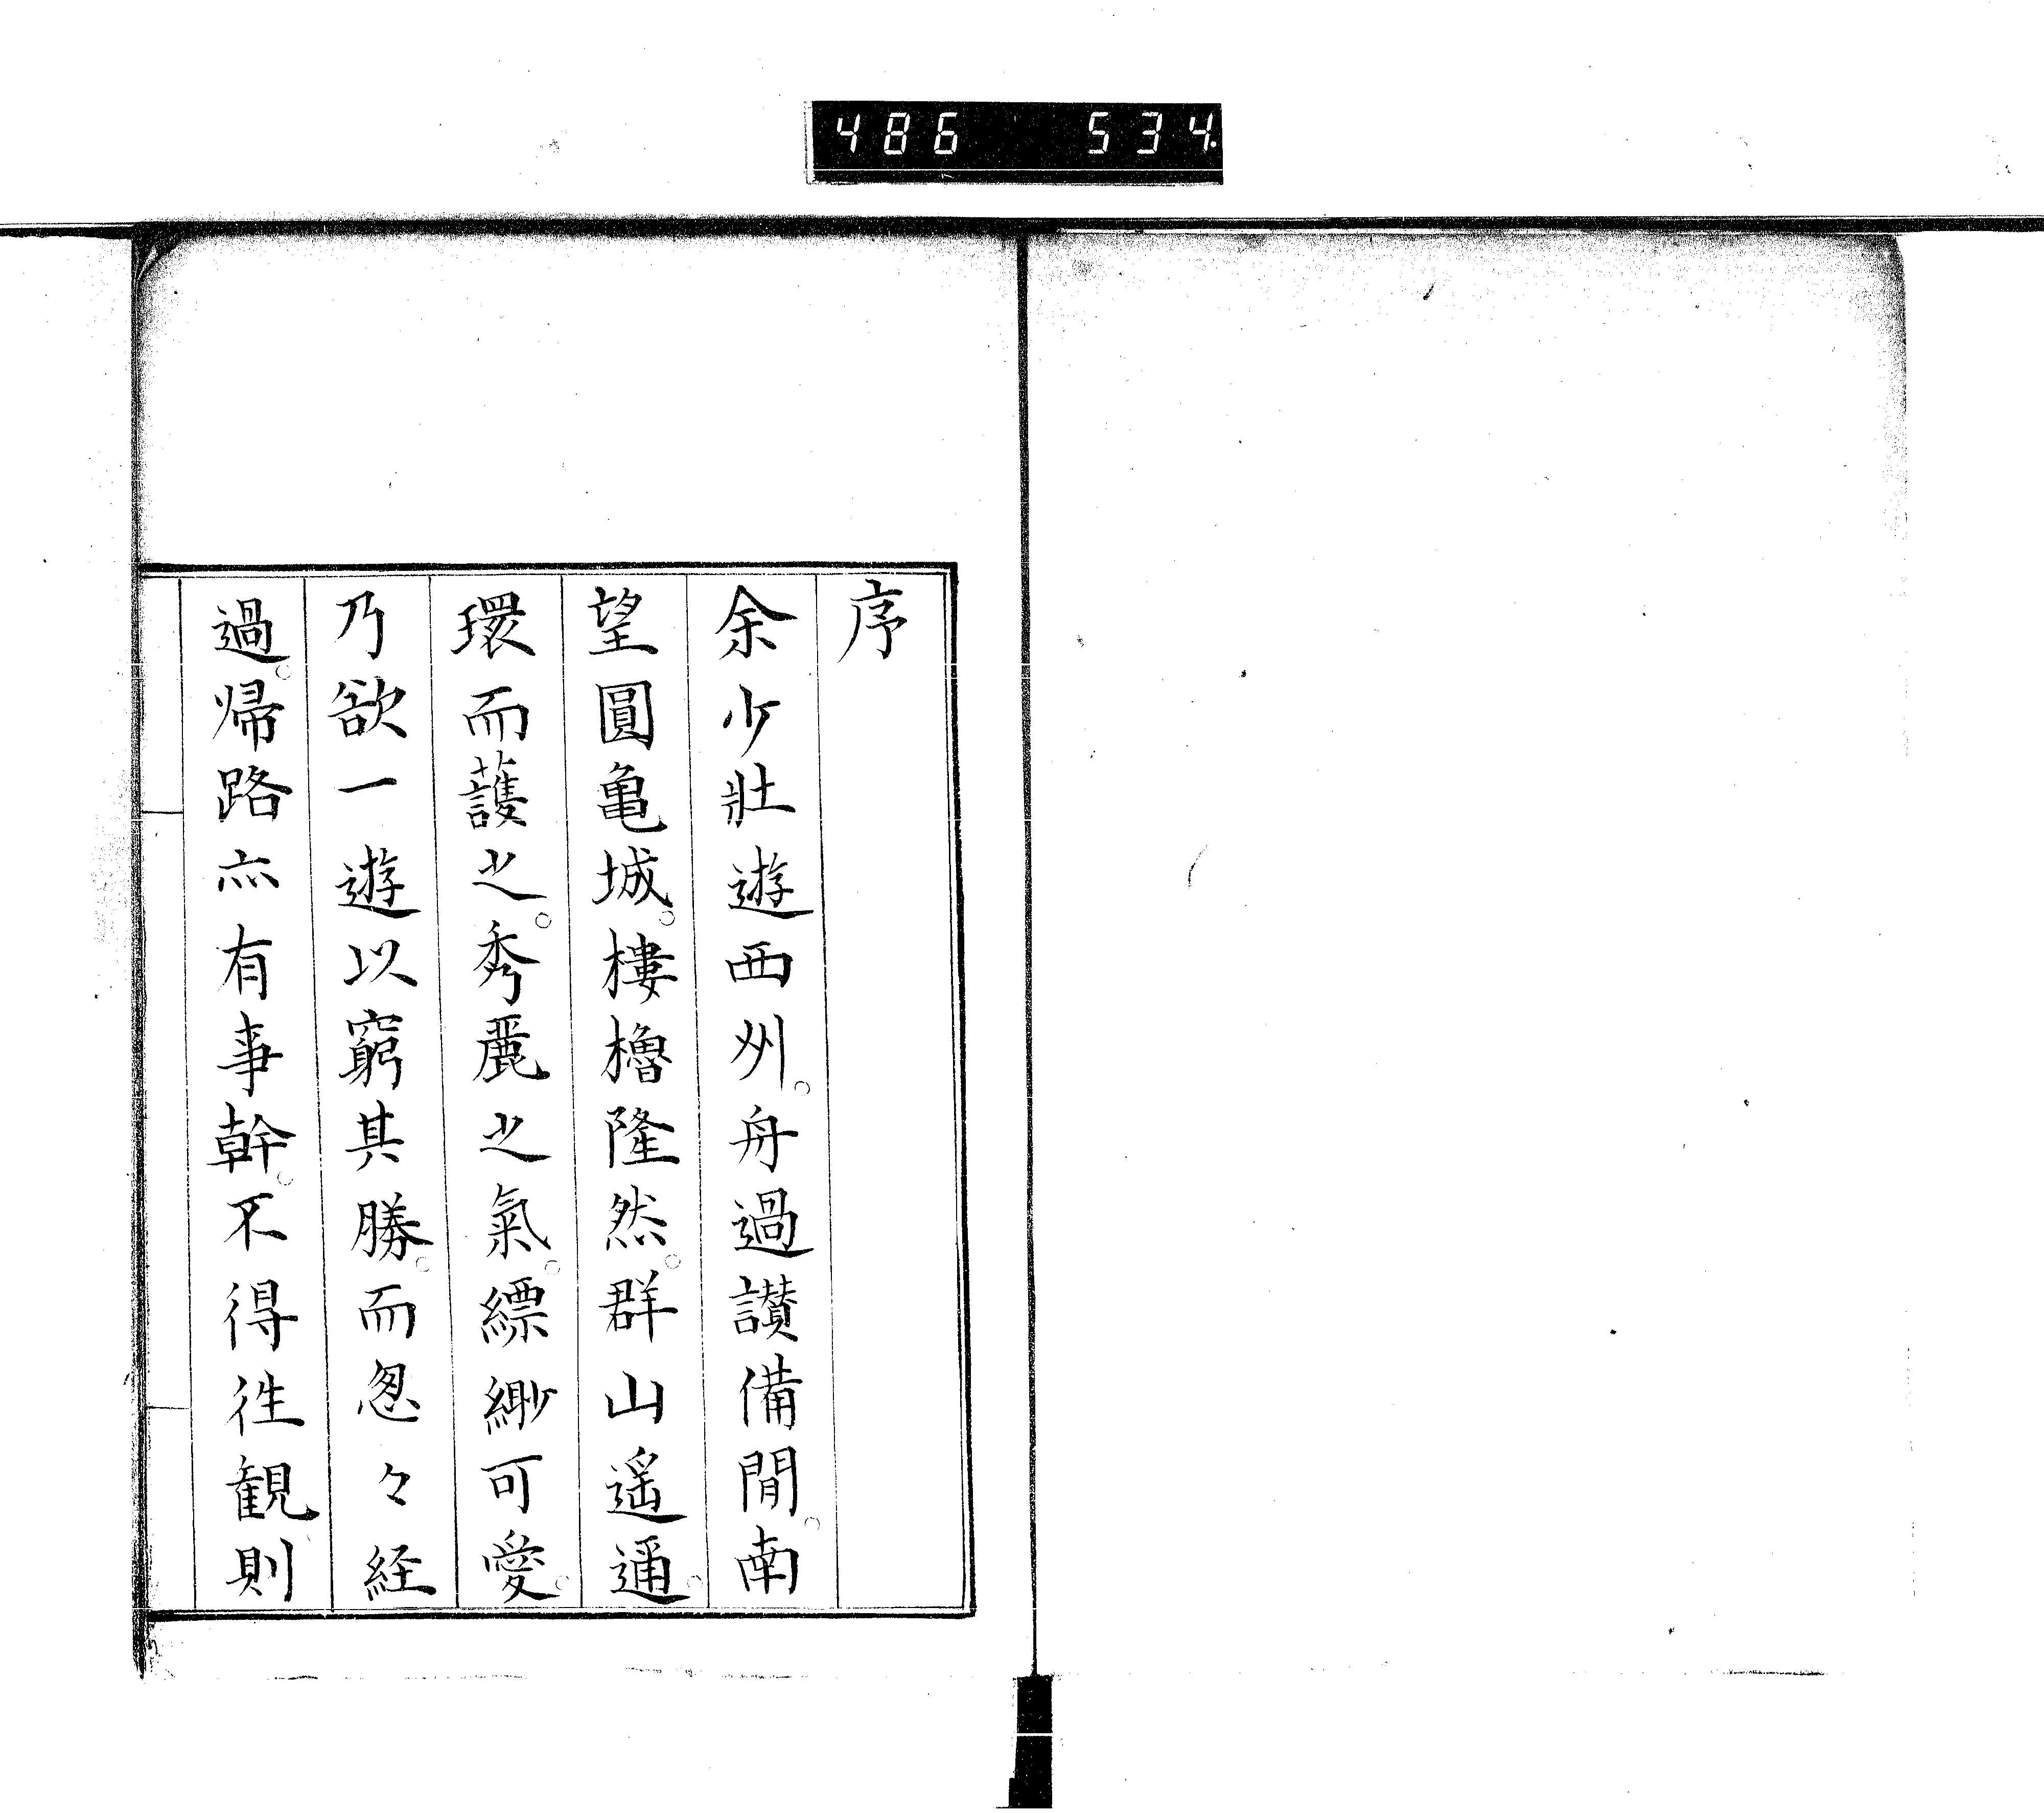 486 534
序
余少壯遊西州。舟過讃備間。南
望圓亀城。樓櫓隆然。群山遥邇。
環而護之。秀麗之氣。縹緲可愛。
乃欲一遊以窮其勝。而怱々経
過。帰路亦有事幹。不得往観。則